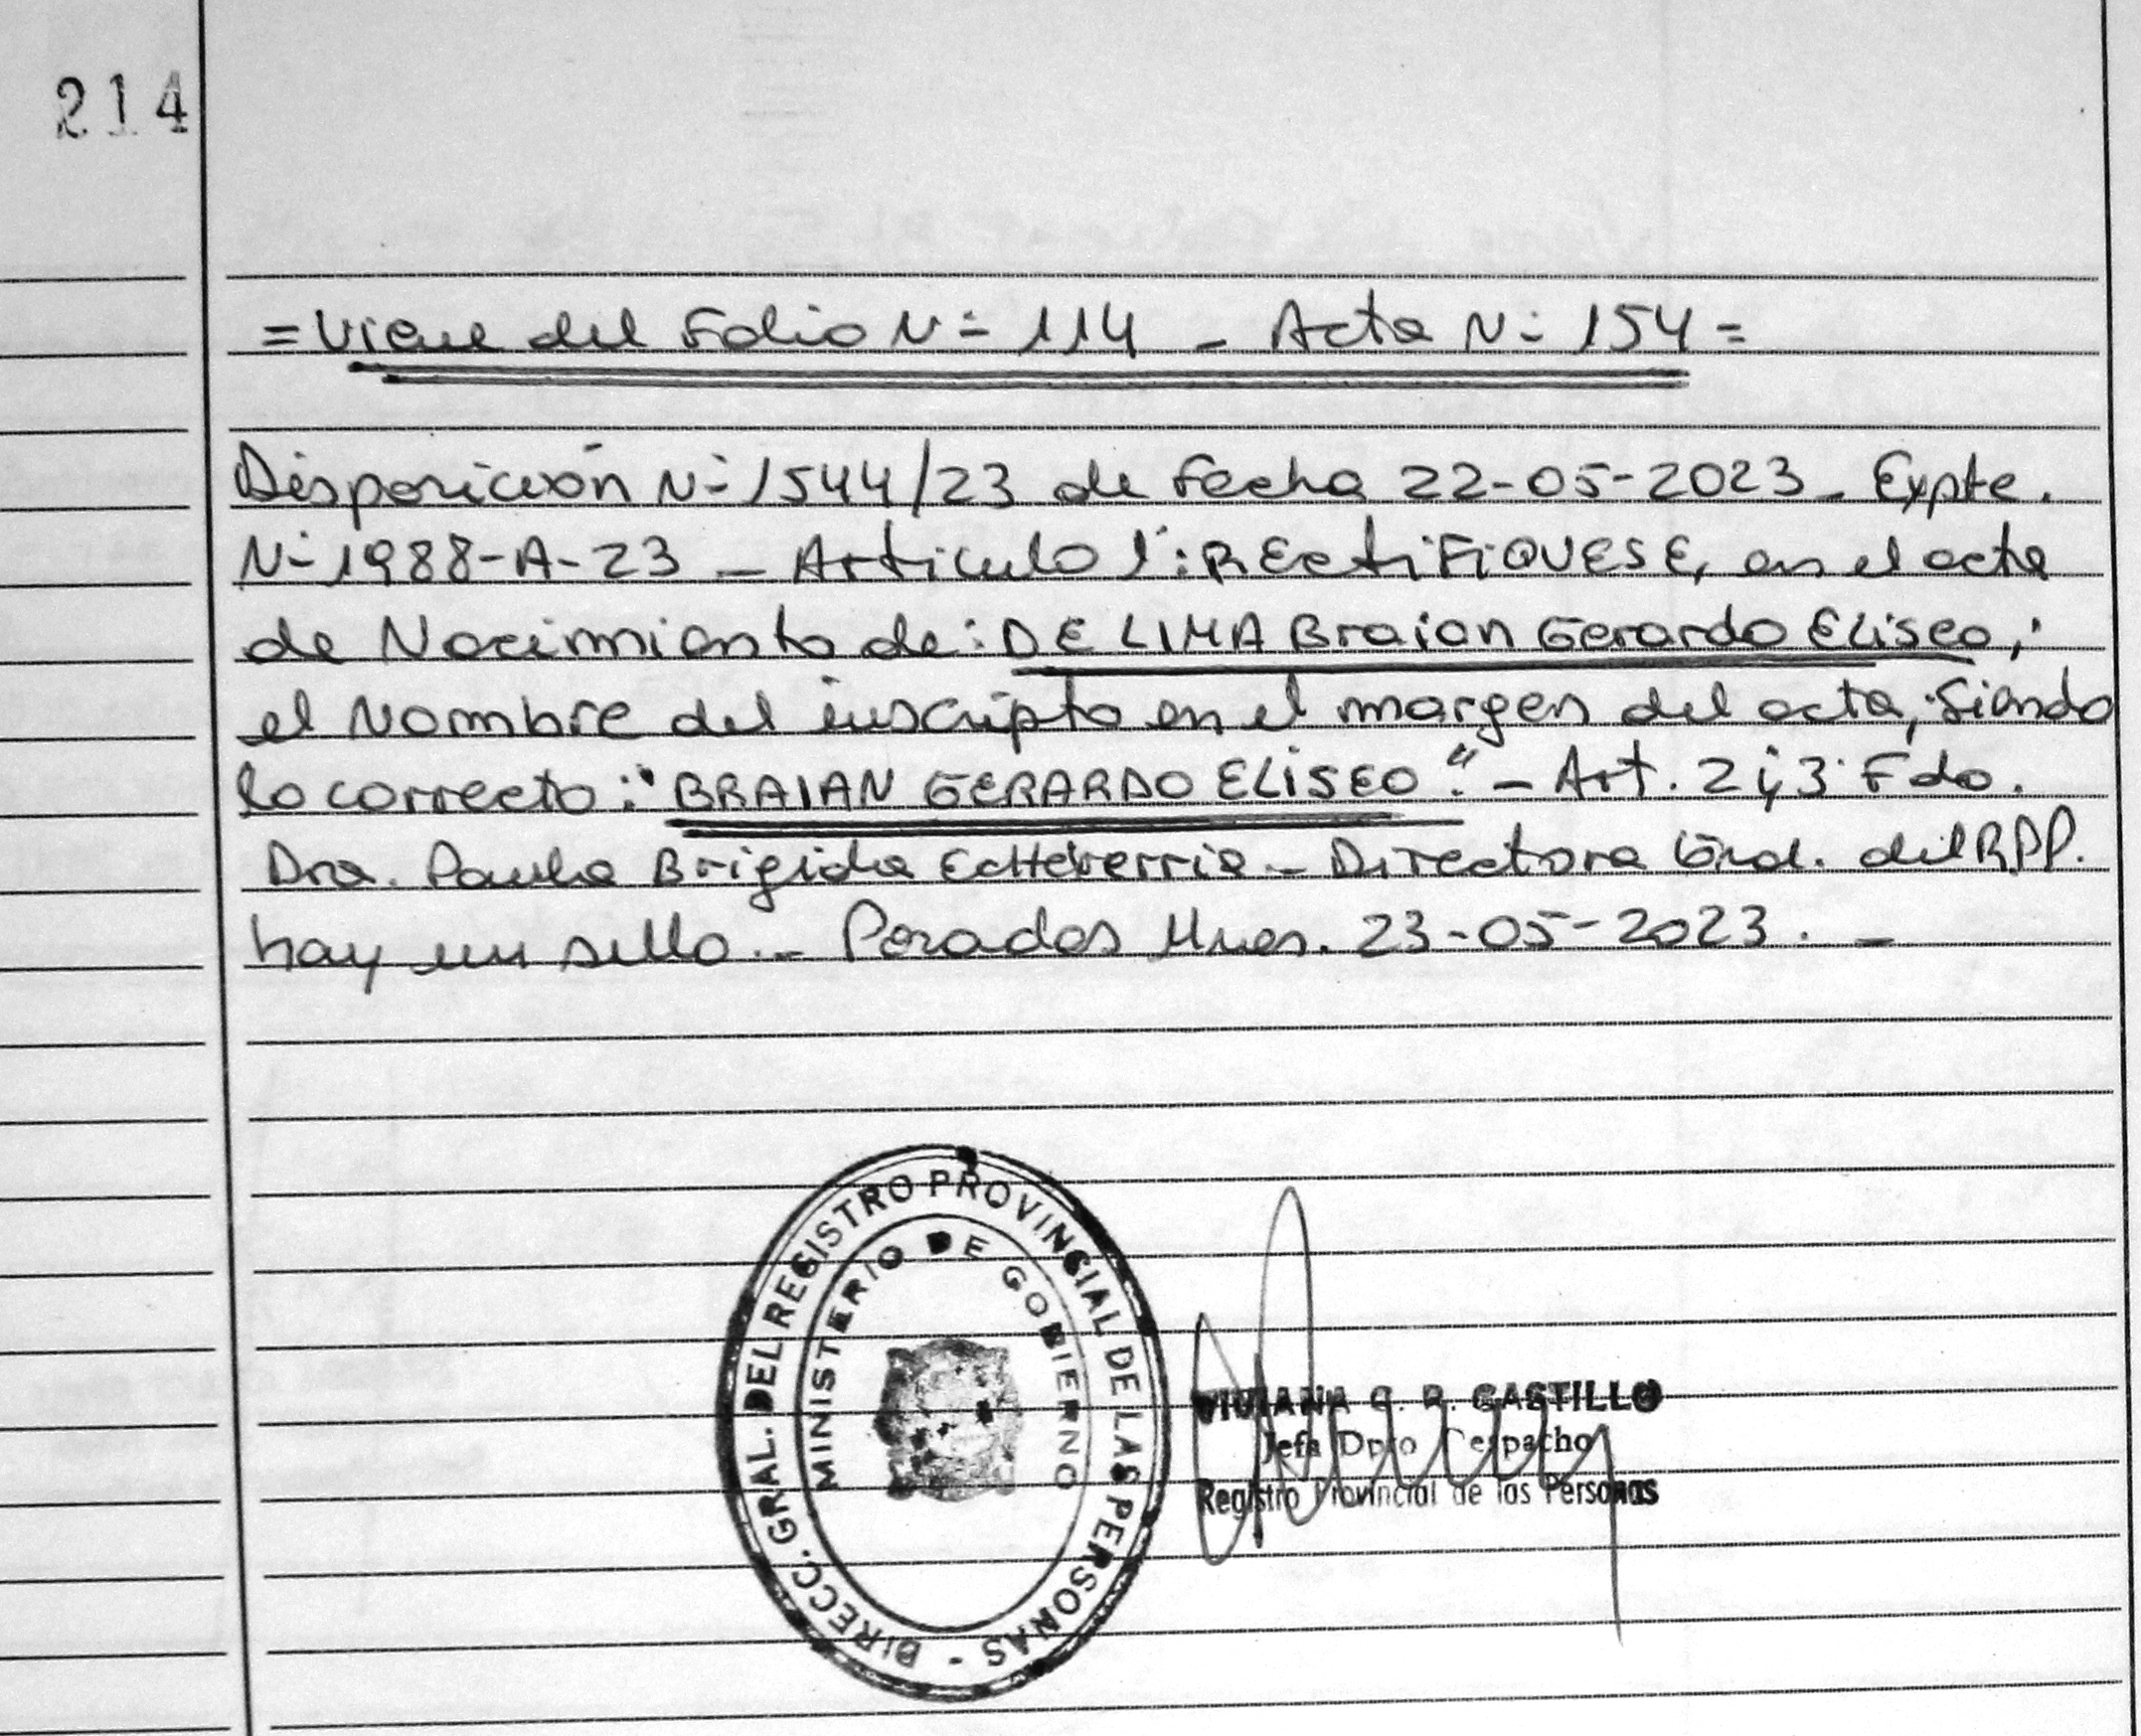 214
= Viene del Folio N= 114 - Acta N= 154 =
Disposición N= 1544/23 de Fecha 22-05-2023 - Expte.
N= 1988-A-23 - Articulo 1°: RECtiFiQUESE, en el acta
de Nacimiento de: DE LIMA Braian Gerardo ELiseo;
el Nombre del inscripto en el margen del acta, siendo
lo correcto: "BRAIAN GERARDO ELiSEO". - Art. 2 y 3 Fdo.
Dra. Paula Brigida Echeverria - Directora Gral. del RPP.
hay un sello. - Posadas Mnes. 23-05-2023. -
DIRECC. GRAL. DEL REGISTRO PROVINCIAL DE LAS PERSONAS -
MINISTERIO DE GOBIERNO
VIVIANA C. R. CASTILLO
Jefa Dpto Despacho
Registro Provincial de las Personas